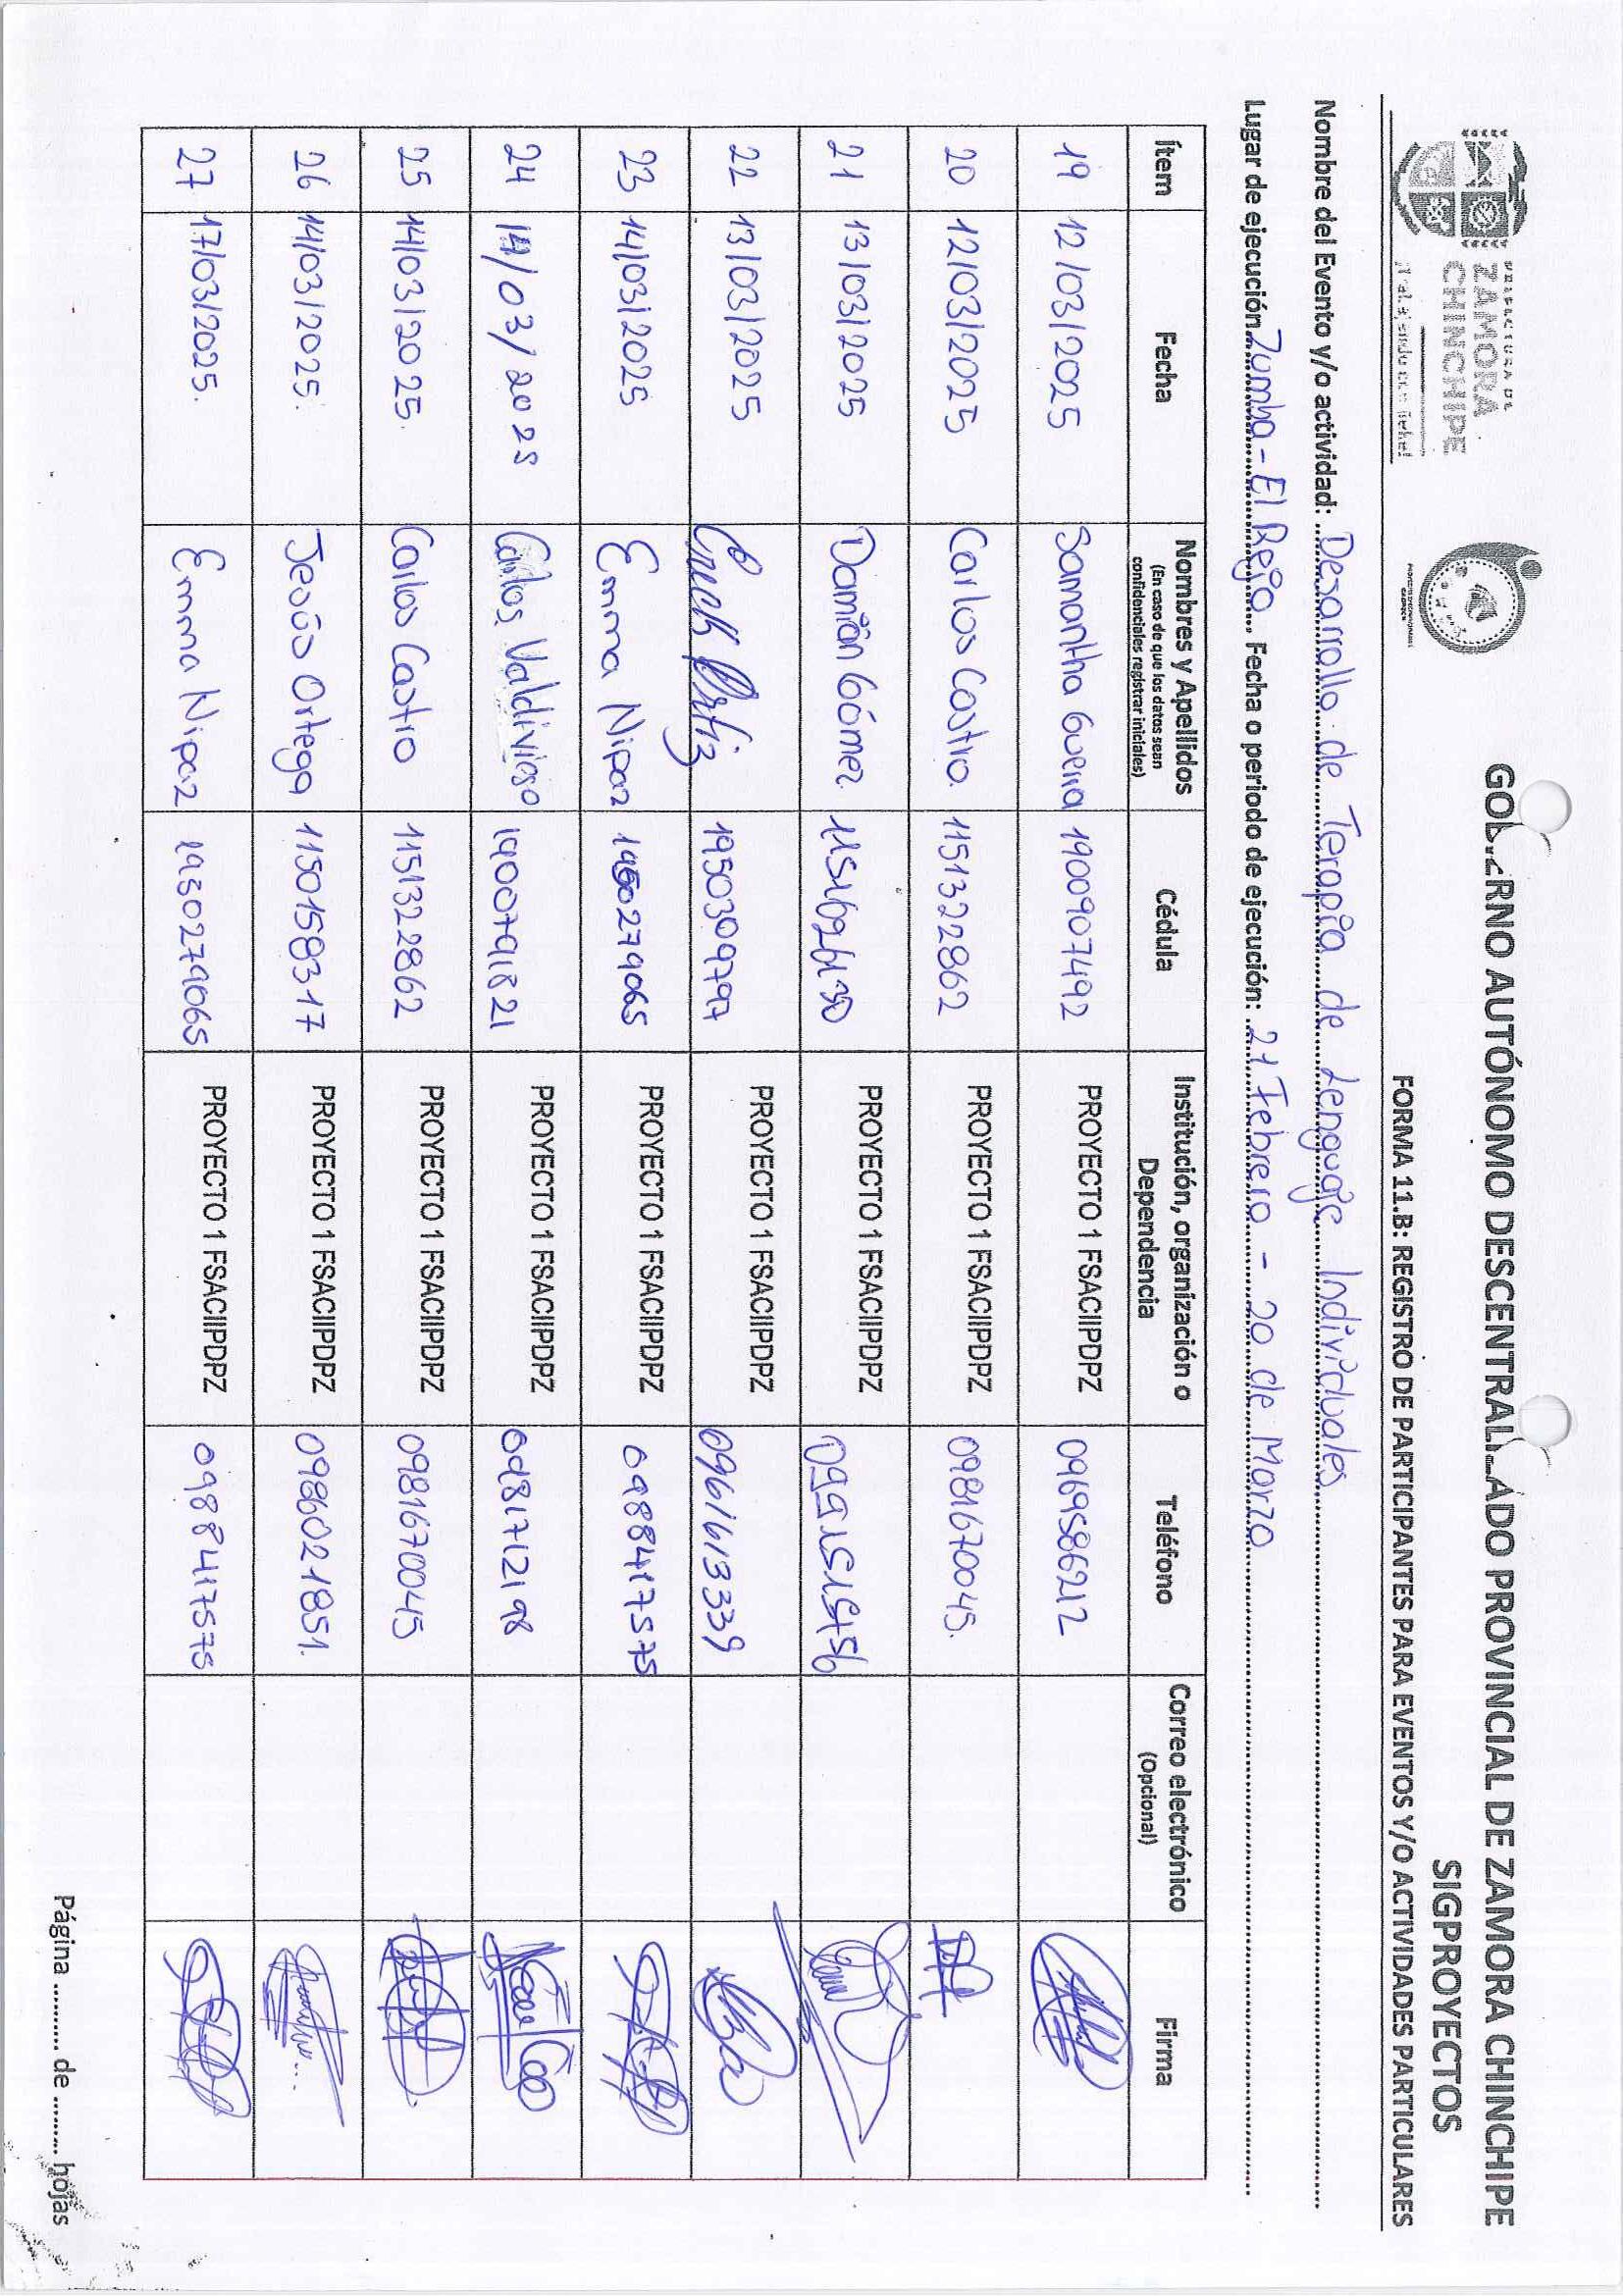 PREFECTURA DE
ZAMORA
CHINCHIPE
GOBIERNO AUTÓNOMO DESCENTRALIZADO PROVINCIAL DE ZAMORA CHINCHIPE
SIGPROYECTOS
FORMA 11.B: REGISTRO DE PARTICIPANTES PARA EVENTOS Y/O ACTIVIDADES PARTICULARES
Nombre del Evento y/o actividad: Desarrollo de Terapia de Lenguaje Individuales
Lugar de ejecución Zumba - El Rejo Fecha o periodo de ejecución: 21 Febrero - 20 de Marzo
Ítem Fecha Nombres y Apellidos (En caso de que los datos sean confidenciales registrar iniciales) Cédula Institución, organización o Dependencia Teléfono Correo electrónico (Opcional) Firma
19 12/03/2025 Samantha Guerra 1900907492 PROYECTO 1 FSACIIPDPZ 0969586212
20 12/03/2025 Carlos Castro. 1151322862 PROYECTO 1 FSACIIPDPZ 0981670045.
21 13/03/2025 Damián Gómez PROYECTO 1 FSACIIPDPZ
22 13/03/2025 Ortiz 1950309797 PROYECTO 1 FSACIIPDPZ 0961613339
23 14/03/2025 Emma Nipaz PROYECTO 1 FSACIIPDPZ 0988417575
24 14/03/2025 Carlos Valdivieso 1900791821 PROYECTO 1 FSACIIPDPZ 0981712198
25 14/03/2025. Carlos Castro 1151322862 PROYECTO 1 FSACIIPDPZ 0981670045
26 14/03/2025. Jesús Ortega 1150158317 PROYECTO 1 FSACIIPDPZ 0986021851.
27 17/03/2025. Emma Nipaz 1930279065 PROYECTO 1 FSACIIPDPZ 0988417575
Página .......... de ........ hojas